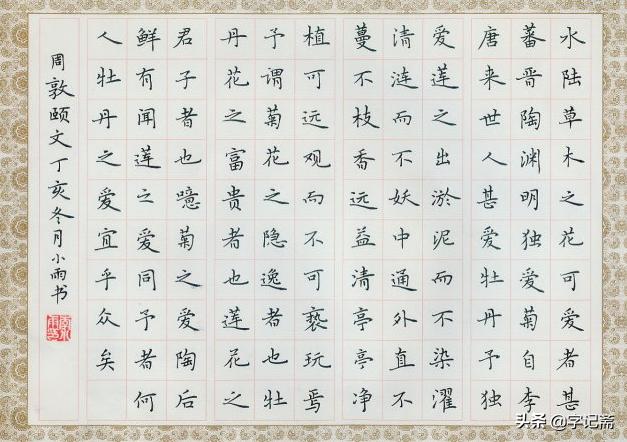 水陆草木之花可爱者甚
蕃晋陶渊明独爱菊自李
唐来世人甚爱牡丹予独
爱莲之出淤泥而不染濯
清涟而不妖中通外直不
蔓不枝香远益清亭亭净
植可远观而不可亵玩焉
予谓菊花之隐逸者也牡
丹花之富贵者也莲花之
君子者也噫菊之爱陶后
鲜有闻莲之爱同予者何
人牡丹之爱宜乎众矣
周敦颐文丁亥冬月小雨书
头条 @字记斋